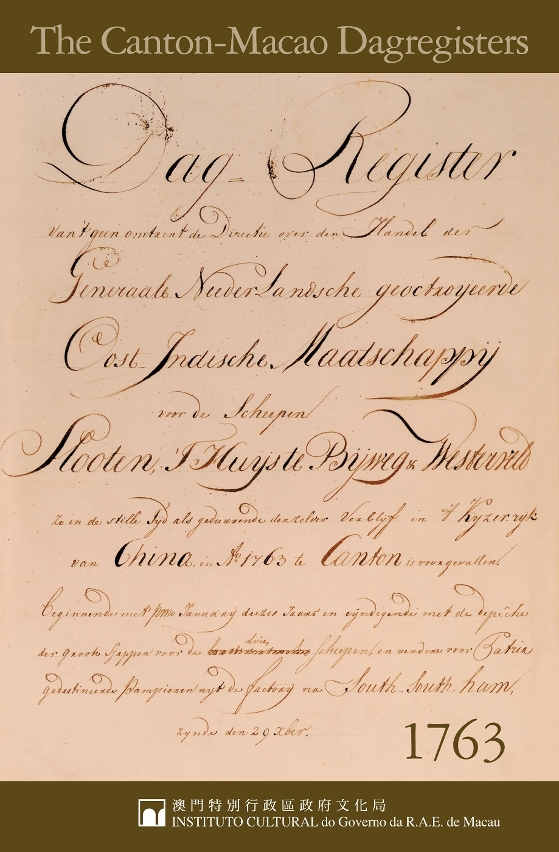 The Canton-Macao Dagregisters
Dag-Register
van 't geen omtrent de Directie over den Handel der
Generaale Nederlandsche geoctroyeerde
Oost-Indische Maatschappij
voor de Scheepen
Slooten, 'T Huys te Bijweg & Westerveld
zo in de stille tyd als geduurende derzelver Verblyf in 't Kyzerryk
van China in Ao. 1763 te Canton is voorgevallen.
Beginnende met pmo January deezes Jaars en eyndigende met de depêche
der groote Happen voor de drie Scheepen, en verdere voor Patria
gedestineerde Pampieren uyt de factory na South-South-ham,
zynde den 29 Xber.
1763
澳門特別行政區政府文化局
INSTITUTO CULTURAL do Governo da R.A.E. de Macau